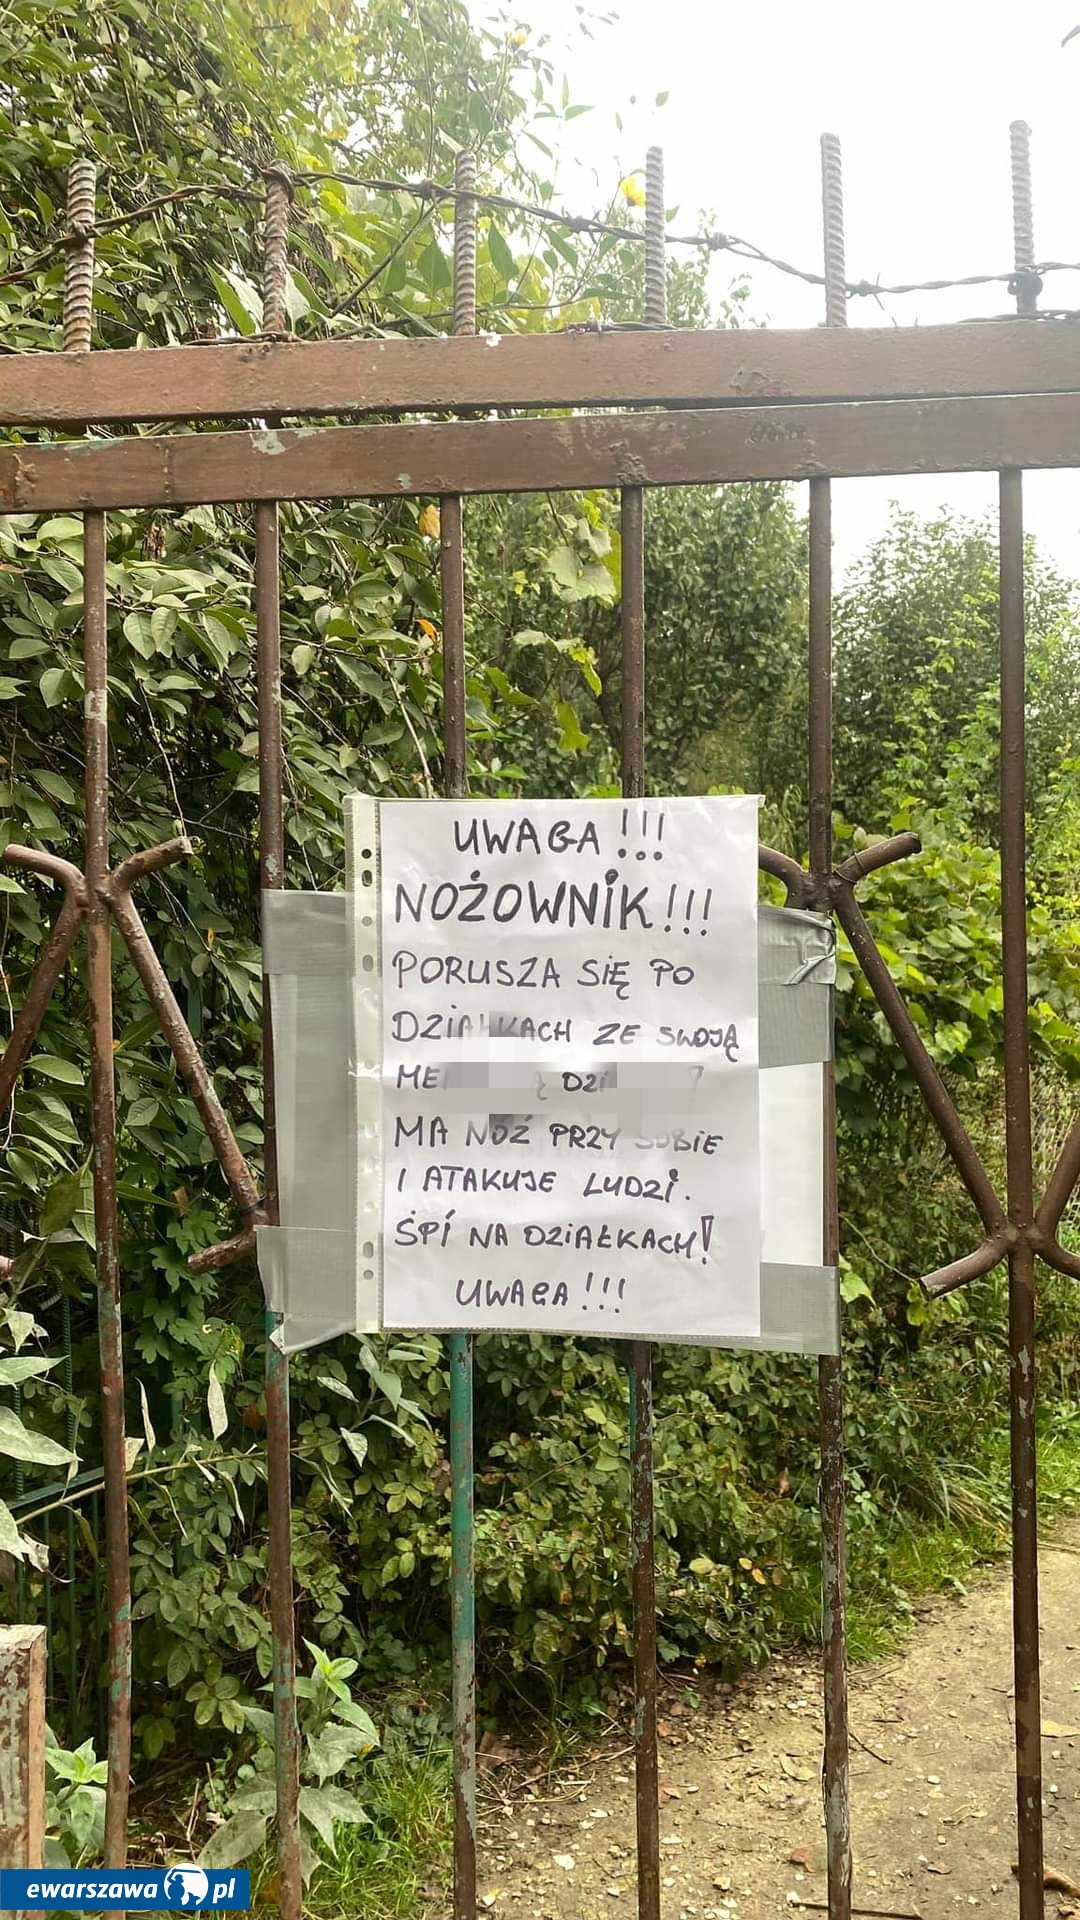 UWAGA!!!
NOŻOWNIK!!!
PORUSZA SIĘ PO
DZIAŁKACH ZE SWOJĄ
MA NÓŻ PRZY SOBIE
I ATAKUJE LUDZI.
ŚPI NA DZIAŁKACH!
UWAGA!!!
ewarszawa.pl